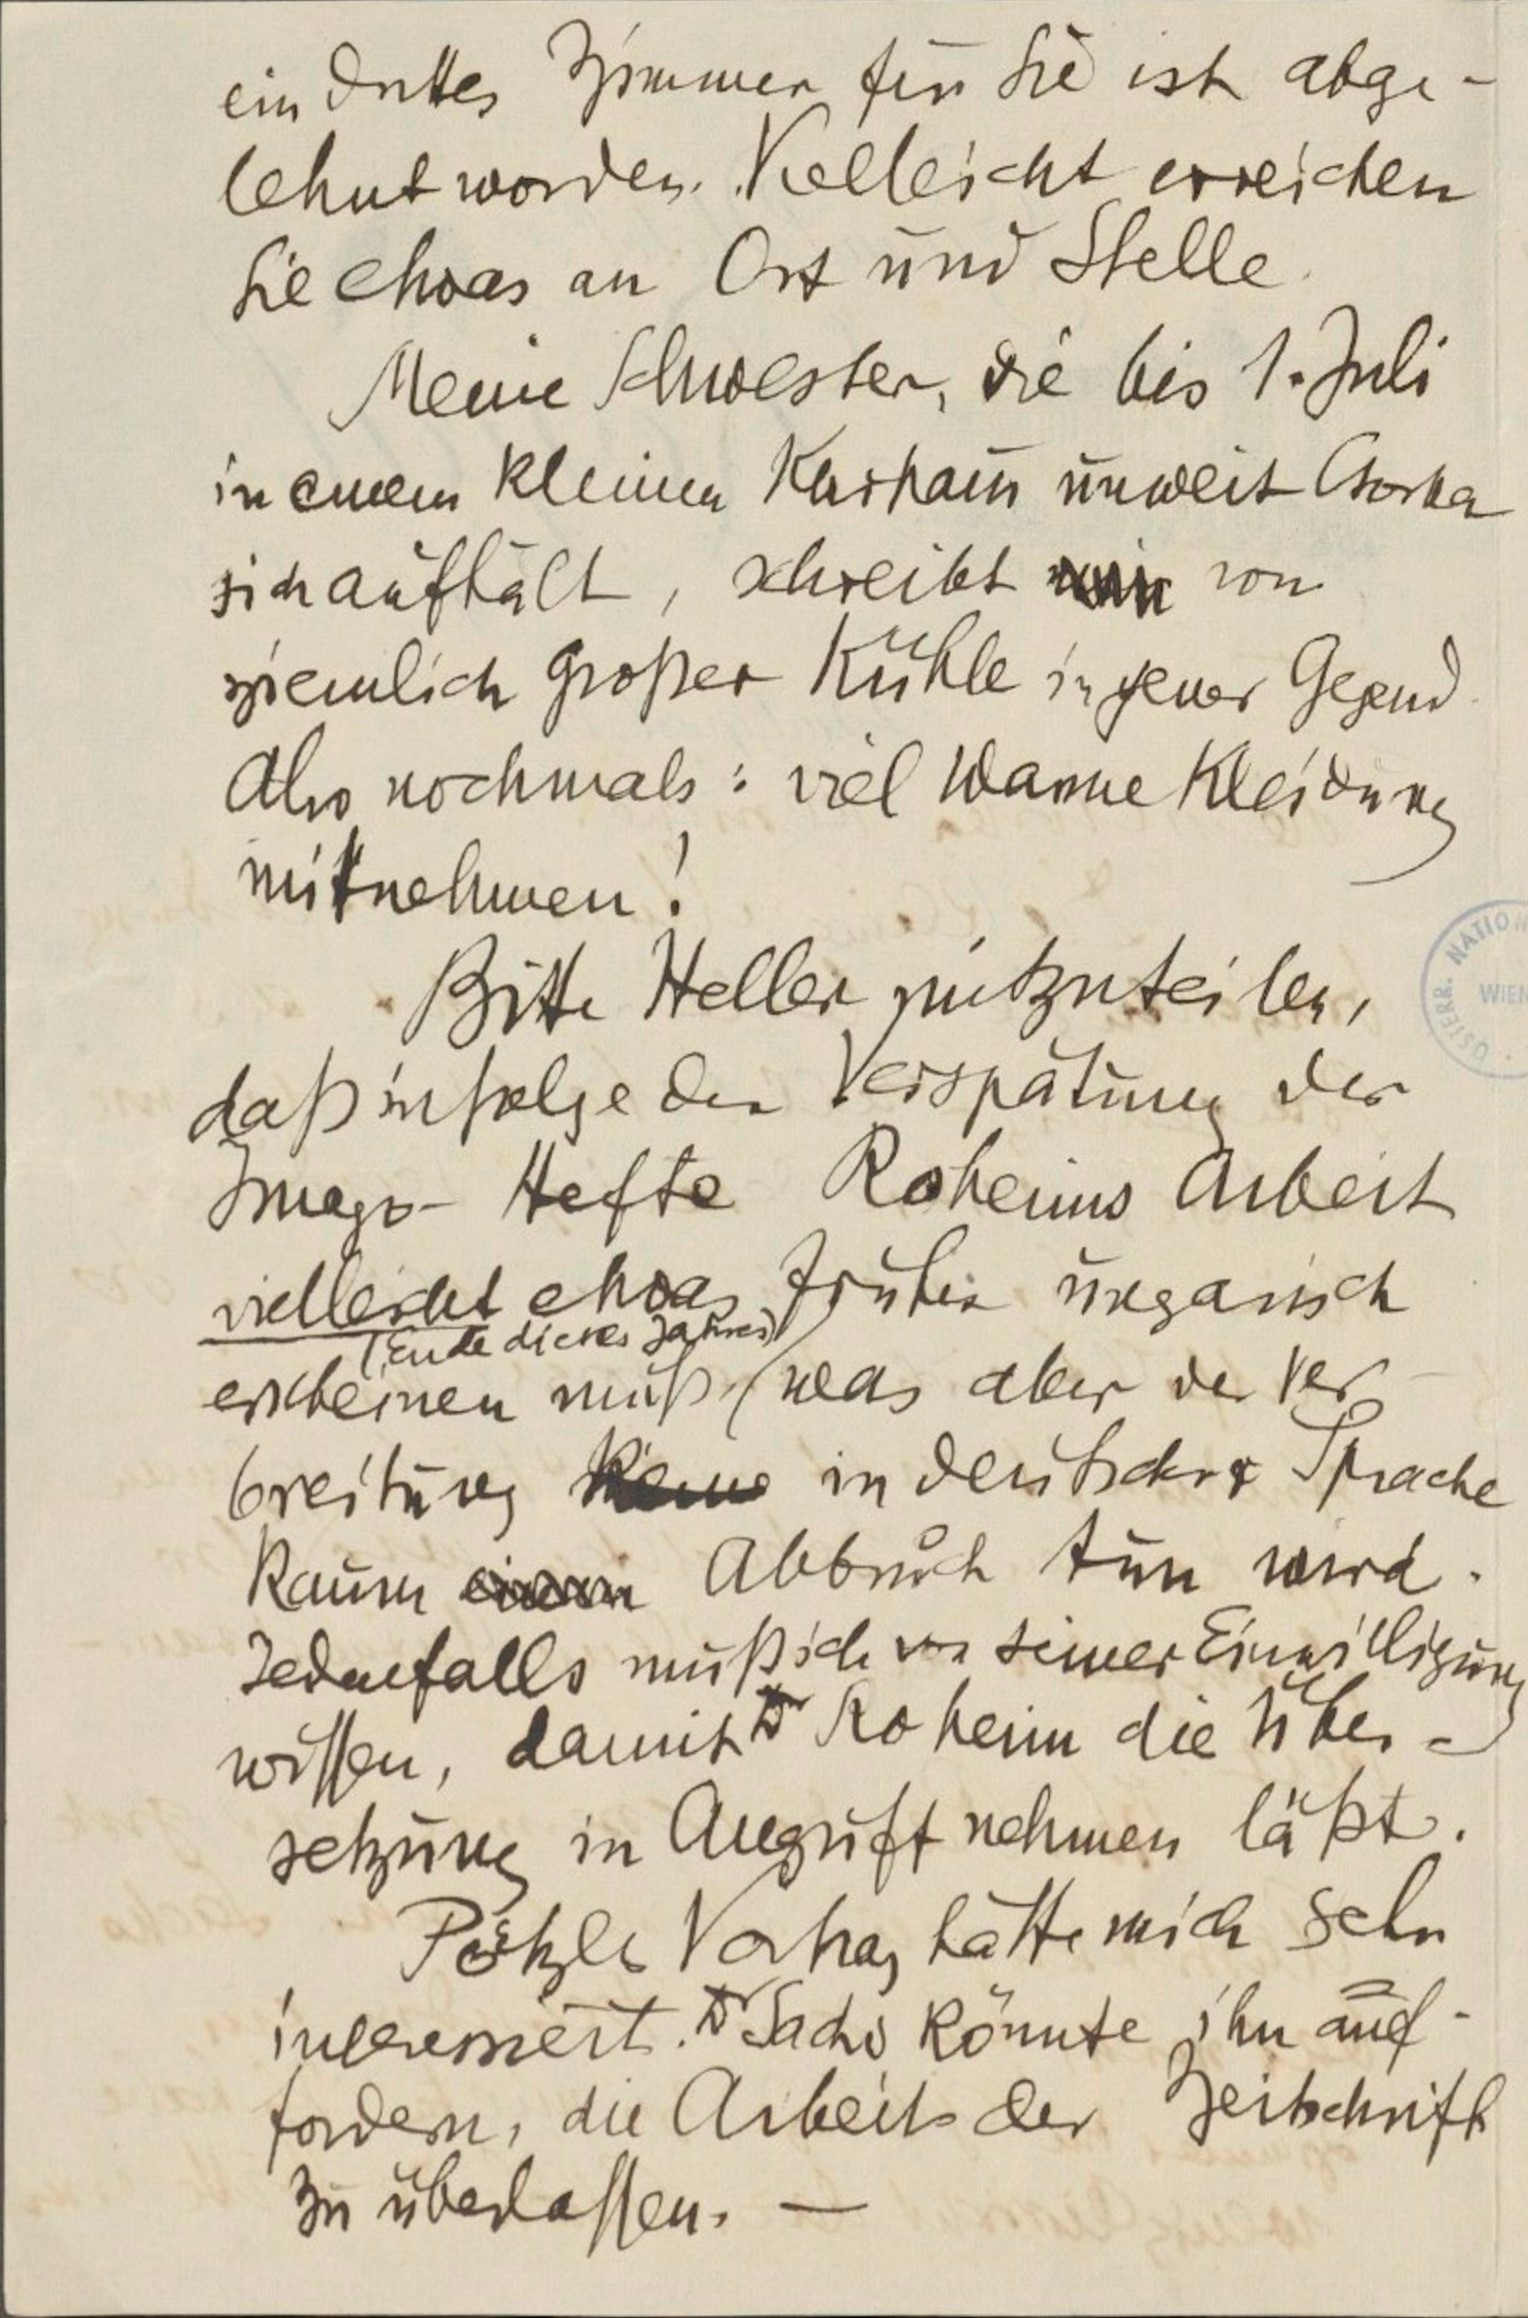 ein drittes Zimmer für Sie ist abge-
lehnt worden. Vielleicht erreichen
Sie etwas an Ort und Stelle.
Meine Schwester, die bis 1. Juli
in einem kleinen Kurhaus unweit Csorba
sich aufhält, schreibt mir von
ziemlich großer Kühle in jener Gegend.
Also nochmals: viel warme Kleidung
mitnehmen!
Bitte Heller mitzuteilen,
daß infolge der Verspätung der
Imago-Hefte Roheims Arbeit
vielleicht etwas früher ungarisch
(Ende dieses Jahres)
erscheinen muß, (was aber der Ver-
breitung keine in deutscher Sprache
kaum einen Abbruch tun wird.
Jedenfalls muß ich von seiner Einwilligung
wissen, damit Dr Roheim die Über-
setzung in Angriff nehmen läßt.
Pötzls Vortrag hätte mich sehr
interessiert. Dr Sachs könnte ihn auf-
fordern, die Arbeit der Zeitschrift
zu überlassen. —
ÖSTERR. NATION
WIEN